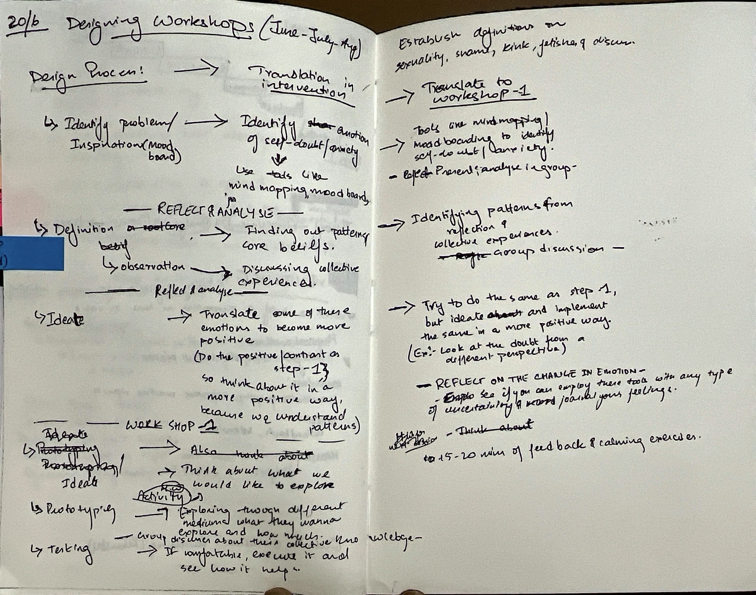 20/6 Designing Workshops (June-July-Aug)
Design Process: → Translation in
intervention
↳ Identify problem/ → Identify emotion
Inspiration (Mood of self-doubt/anxiety
board) ↓
Use tools like
mind mapping, mood boards,
— REFLECT & ANALYSE —
↳ Definition → Finding out patterns,
core beliefs.
↳ observation → Discussing collective
experiences.
— Reflect & analyse —
↳ Ideate → Translate some of these
emotions to become more
positive
(Do the positive/contrast on
step-1)
so think about it in a
more positive way,
because we understand
patterns)
— WORKSHOP-1
Ideate
↳ Prototyping → Also think about
Ideate
→ Think about what we
would like to explore
Activity
↳ Prototyping → Exploring through different
mediums what they wanna
explore and how much.
— Group discuss about their collective knowledge —
↳ Testing → If comfortable, execute it and
see how it helps.
Establish definitions on
sexuality, shame, kink, fetishes &
→ Translate to
workshop-1
→ Tools like mind mapping/
mood boarding to identify
self-doubt/anxiety.
- Present & analyse in group-
→ Identifying patterns from
reflection &
collective experiences.
Group discussion —
→ Try to do the same as step 1,
but ideate and implement
the same in a more positive way.
(Ex:- Look at the doubt from a
different perspective)
— REFLECT ON THE CHANGE IN EMOTION —
- see if you can employ these tools with any type
of uncertainty & journal your feelings.
- Think about
15-20 min of feedback & calming exercises.